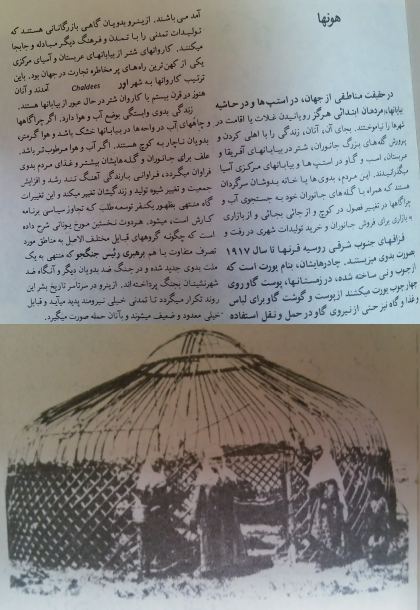 هونها
در حقیقت مناطقی از جهان، در استپ‌ها و در حاشیه
بیابانها، مردمان ابتدائی هرگز رویانیدن غلات یا اقامت در
شهرها را نیاموختند. بجای آن، آنان، زندگی را با اهلی کردن و
پرورش گله‌های بزرگ جانوران، شتر در بیابانهای آفریقا و
عربستان، اسب و گاو در استپ‌ها و بیابانهای مرکزی آسیا
میگذرانیدند. این مردم، بدوی‌ها یا خانه بدوشان سرگردان
هستند که همراه با گله‌های جانوران خود به جستجوی آب و
چراگاهها در تغییر فصول در کوچ و از جائی بجائی و از بازاری
به بازاری برای فروش جانوران و خرید تولیدات شهری در رفت و
آمد می‌باشند. ازینرو بدویان گاهی بازرگانانی هستند که
تولیدات تمدنی را با تمدن و فرهنگ دیگر مبادله و جابجا
میکنند. کاروانهای شتر از بیابانهای عربستان و آسیای مرکزی
یکی از کهن‌ترین راه‌های پر مخاطره تجارت در جهان بود. باین
ترتیب کاروانها به شهر اور Chaldees آمدند و آنان
هنوز در قرن بیستم با کاروان شتر در حال عبور از بیابانها هستند.
زندگی بدوی وابستگی بوضع آب و هوا دارد. اگر چراگاهها
و چاههای آب در واحه‌ها در بیابانها خشک باشد و هوا گرمتر،
بدویان ناچار به کوچ هستند. اگر آب و هوا مرطوب‌تر باشد.
علف برای جانوران و گله‌هایشان بیشتر و غذای مردم بدوی
فراوان میگردد، فراوانی بازندگی آهنگ تند رشد و افزایش
جمعیت و تغییر شیوه تولید و زندگیشان تغییر میکند و این تغییرات
گاه منتهی بظهور یکنفر توسعه طلب که تجاوز سیاسی برنامه
کارش است، میشود. هرودت نخستین مورخ یونانی شرح داده
است که چگونه گروههای قبایل مختلف الاصل به مناطق مورد
تصرف متفاوت با هم برهبری رئیس جنگجو که منتهی به یک
ملت بدوی جدید شده و در جنگ ضد بدویان دیگر و آنگاه ضد
شهرنشینان بجنگ پرداخته‌اند. ازینرو در سرتاسر تاریخ بشر این
روند تکرار میگردد تا تمدنی خیلی نیرومند پدید میآید و قبایل
خیلی محدود و ضعیف میشوند و بآنان حمله صورت میگیرد.
قزاقهای جنوب شرقی روسیه قرنها تا سال ۱۹۱۷
بصورت بدوی میزیستند. چادرهایشان، بنام یورت است که
از چوب ونی ساخته شده، در زمستانها، پوست گاو روی
چهارچوب یورت میکشند از پوست و گوشت گاو برای لباس
وغذا و گاه نیز حتی از نیروی گاو در حمل و نقل استفاده